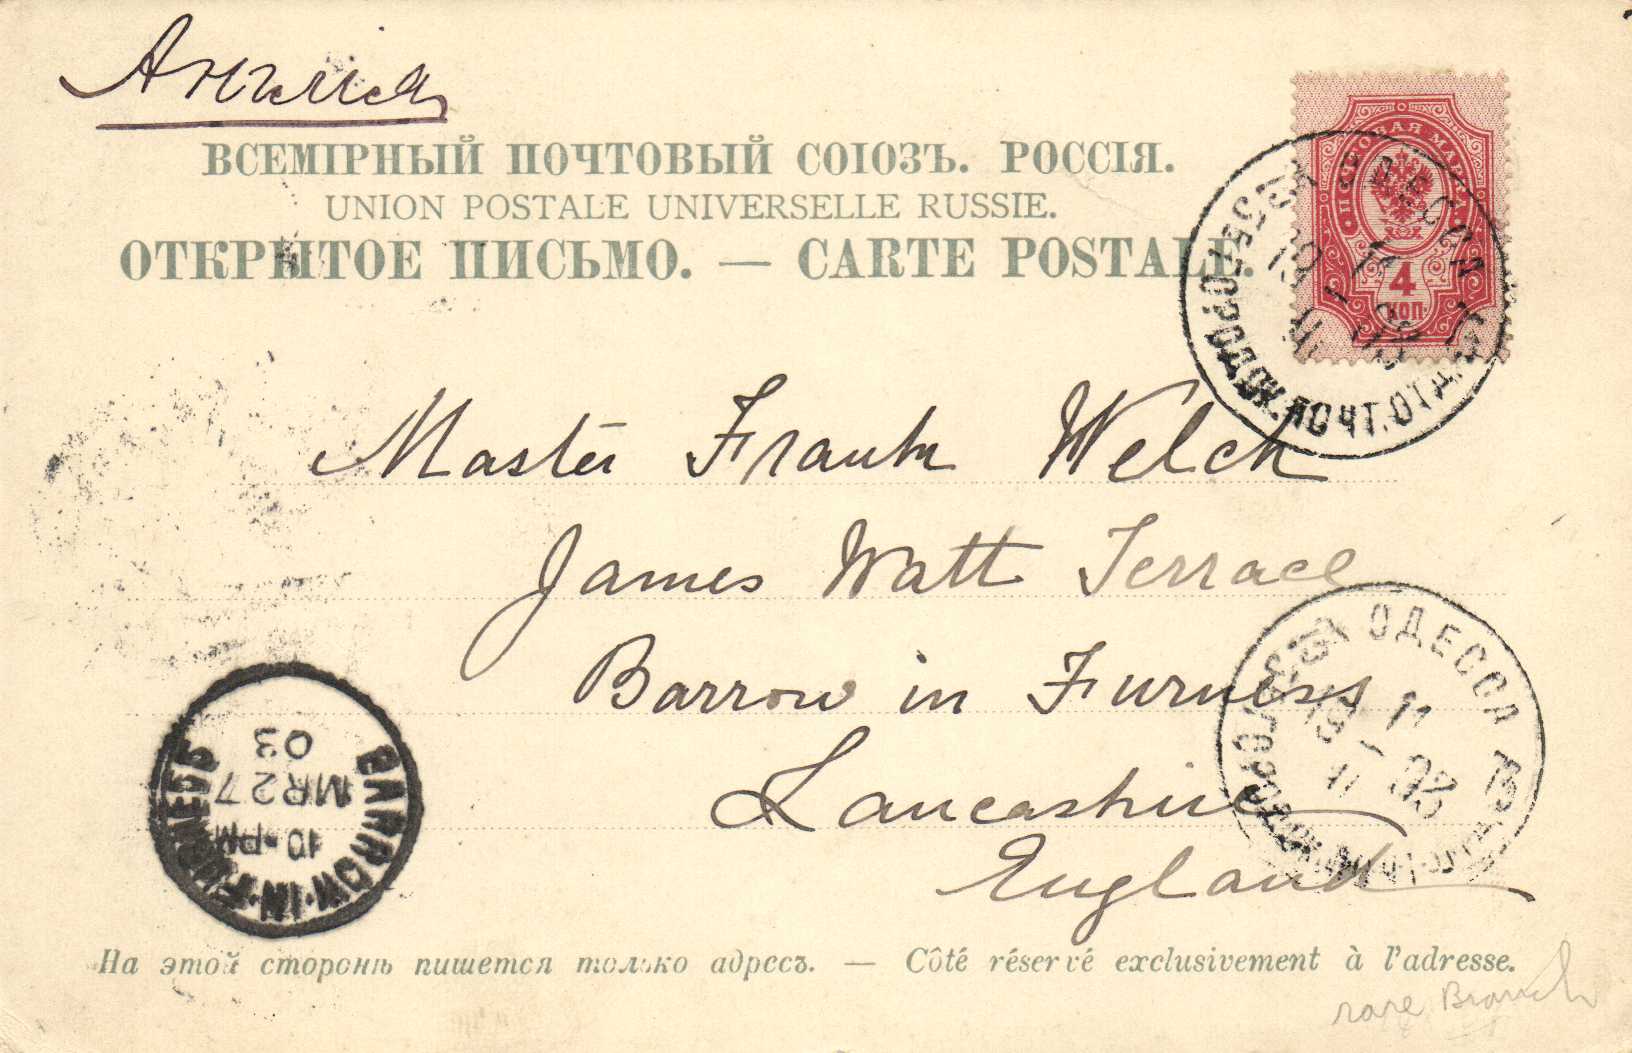 Англія
ВСЕМІРНЫЙ ПОЧТОВЫЙ СОЮЗЪ. РОССІЯ.
UNION POSTALE UNIVERSELLE RUSSIE.
ОТКРЫТОЕ ПИСЬМО. — CARTE POSTALE.
ПОЧТОВАЯ МАРКА
4
КОП
ОДЕССА
ГОРОДСК. ПОЧТ. ОТД.
Master Frank Welch
James Watt Terrace
Barrow in Furness
Lancashire
England
ОДЕССА
11
03
BARROW-IN-FURNESS
10-PM
MR 27
03
На этой сторонѣ пишется только адресъ. — Côté réservé exclusivement à l'adresse.
rare Branch